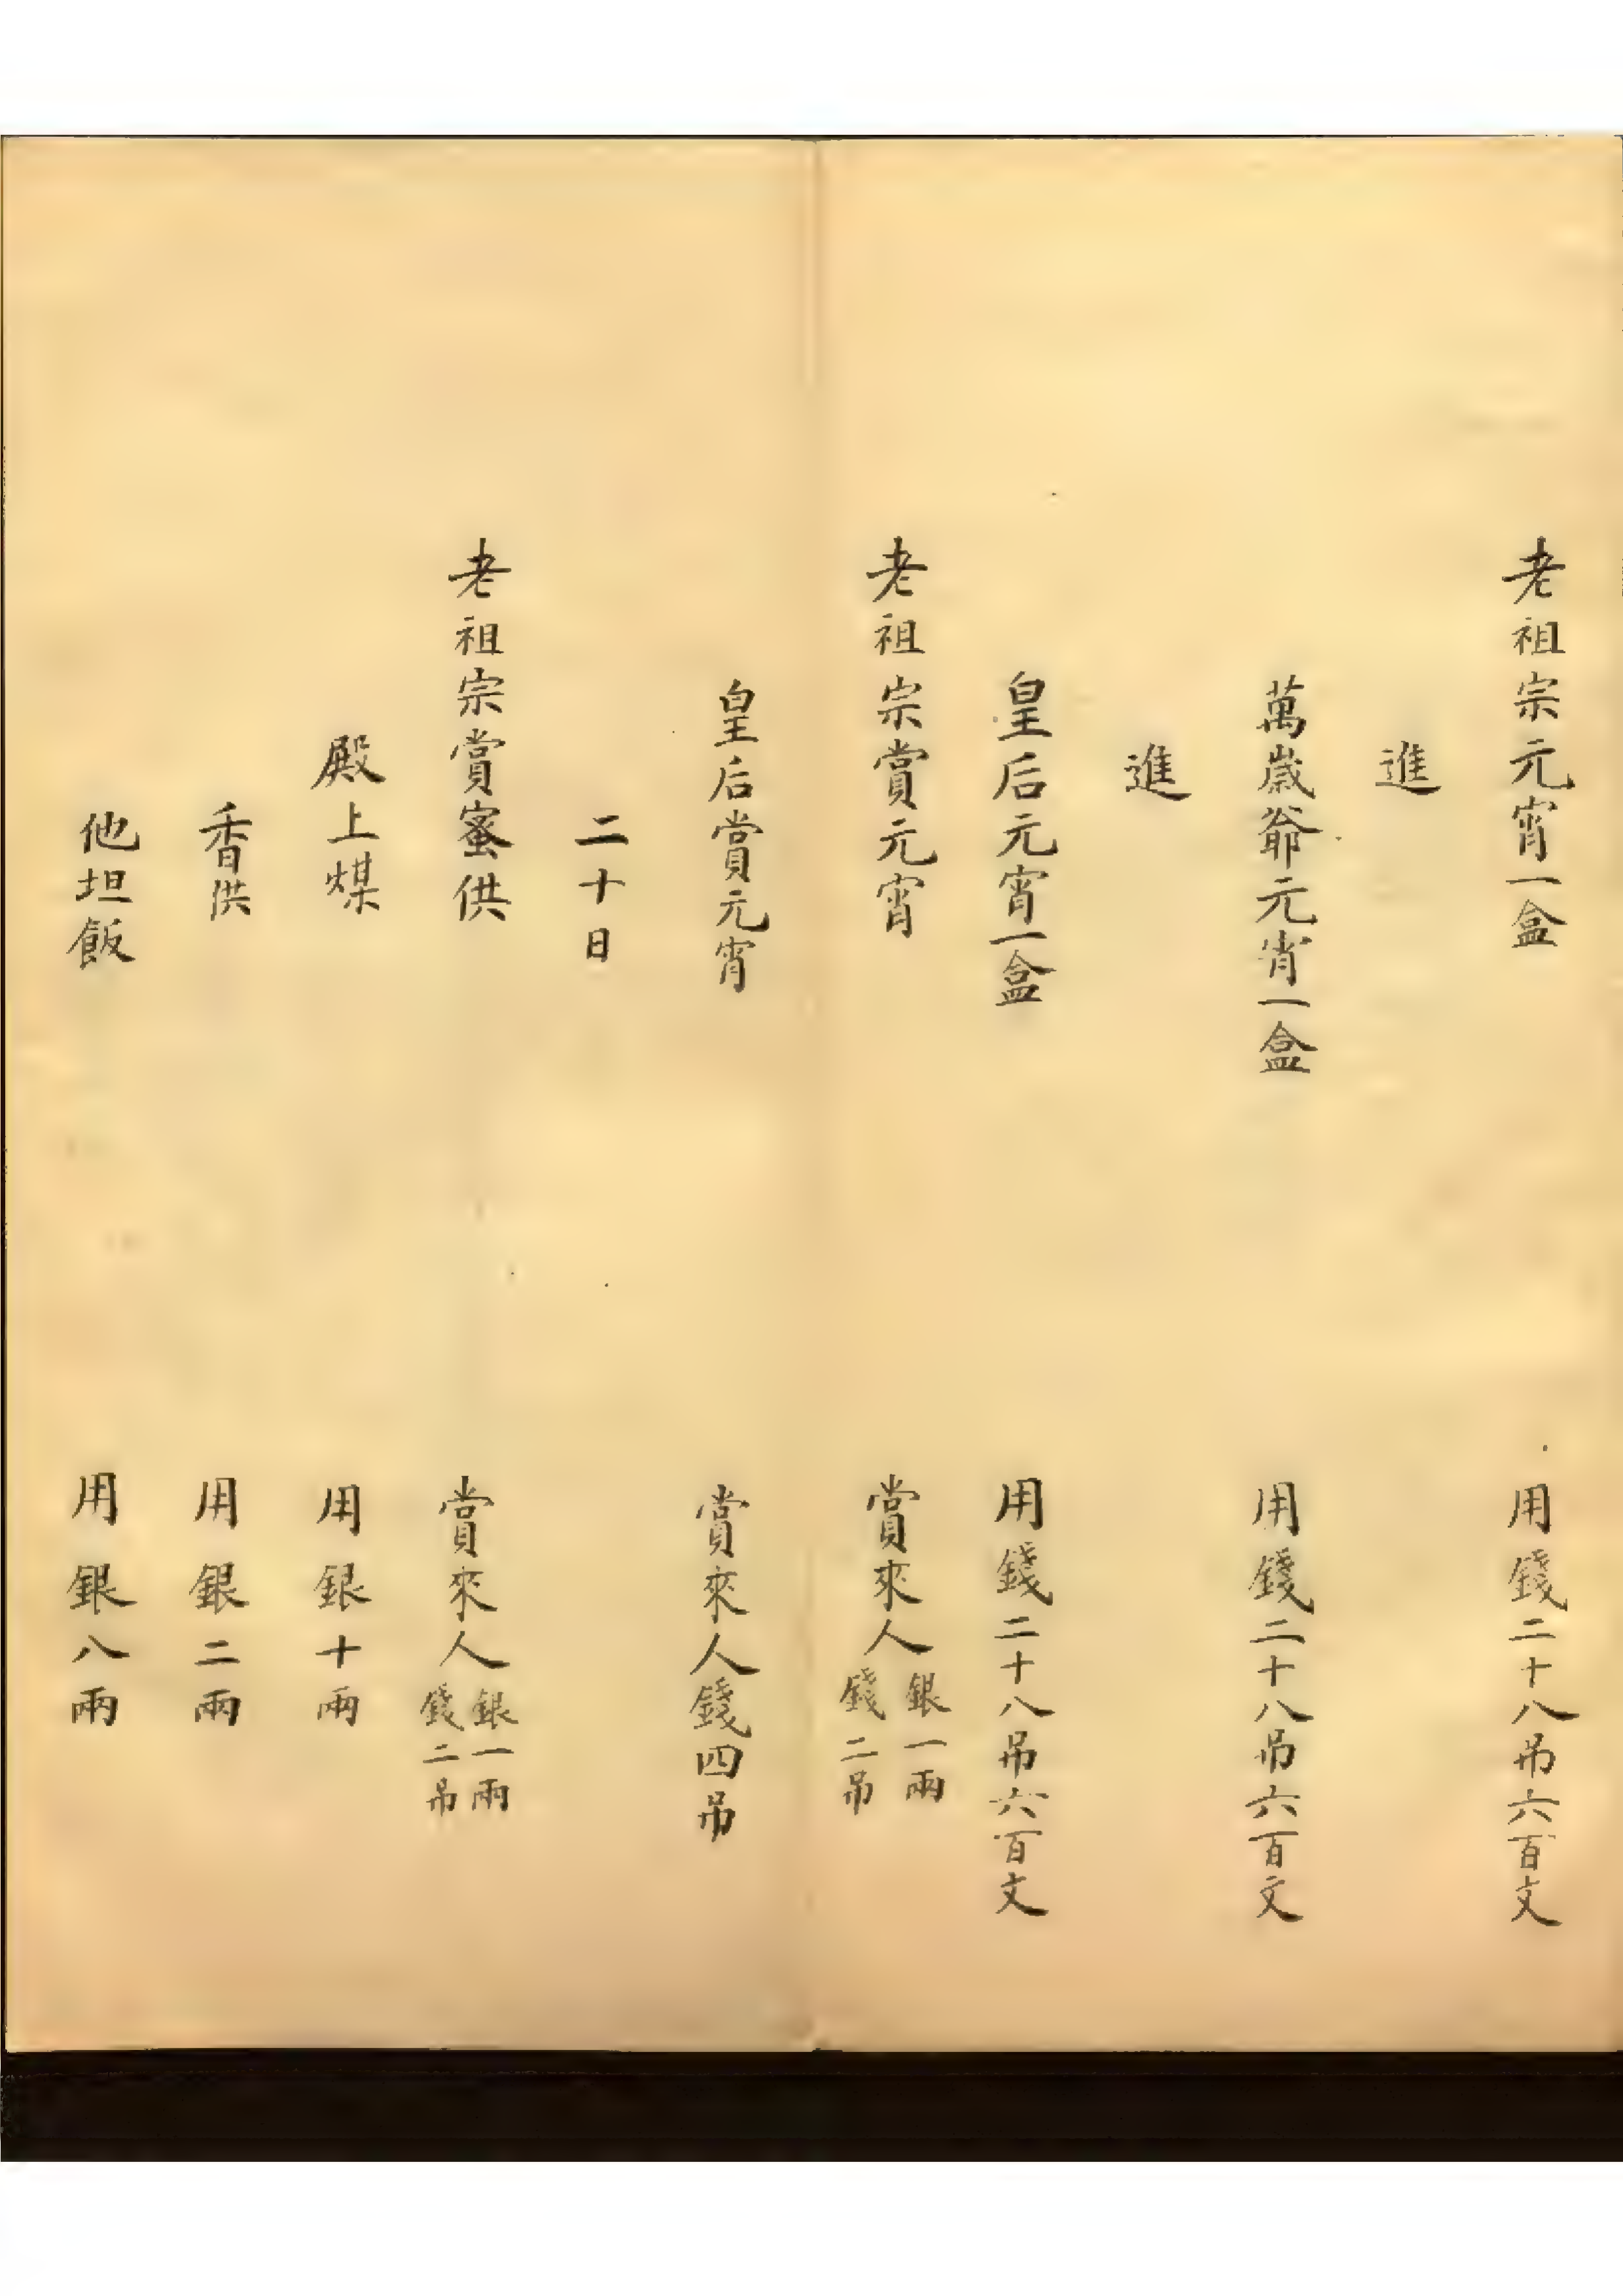 老祖宗元宵一盒　用錢二十八吊六百文
進
萬歲爺元宵一盒　用錢二十八吊六百文
進
皇后元宵一盒　用錢二十八吊六百文
老祖宗賞元宵　賞來人銀一兩錢二吊
皇后賞元宵　賞來人錢四吊
二十日
老祖宗賞蜜供　賞來人銀一兩錢二吊
殿上煤　用銀十兩
香供　用銀二兩
他坦飯　用銀八兩